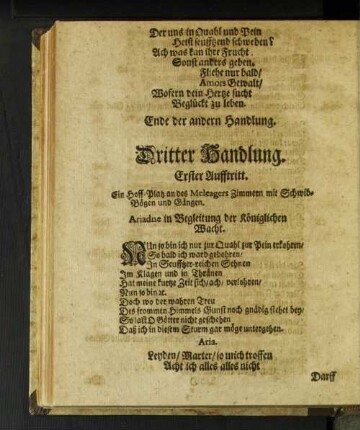 Der uns in Quahl und Pein
Heist seufftzend schweben?
Ach was kan ihre Frucht
Sonst anders geben.
Fliehe nur bald/
Amors Gewalt/
Wofern dein Hertze sucht
Beglückt zu leben.
Ende der andern Handlung.
Dritter Handlung.
Erster Aufftritt.
Ein Hoff-Platz an des Meleagers Zimmern mit Schwib-
Bögen und Gängen.
Ariadne in Begleitung der Königlichen
Wacht.
NUn so bin ich nur zur Quahl zur Pein erkohren/
So bald ich ward gebohren/
In Seufftzer-reichen Sehnen
Im Klagen und in Thränen
Hat meine kurtze Zeit sich/ach/ verlohren/
Nun so bin
Doch wo der wahren Treu
Des frommen Himmels Gunst noch gnädig stehet bey/
So last O Götter nicht geschehen
Daß ich in diesem Sturm gar möge untergehen.
Aria.
Leyden/ Marter/ so mich troffen
Acht ich alles alles nicht
Darff